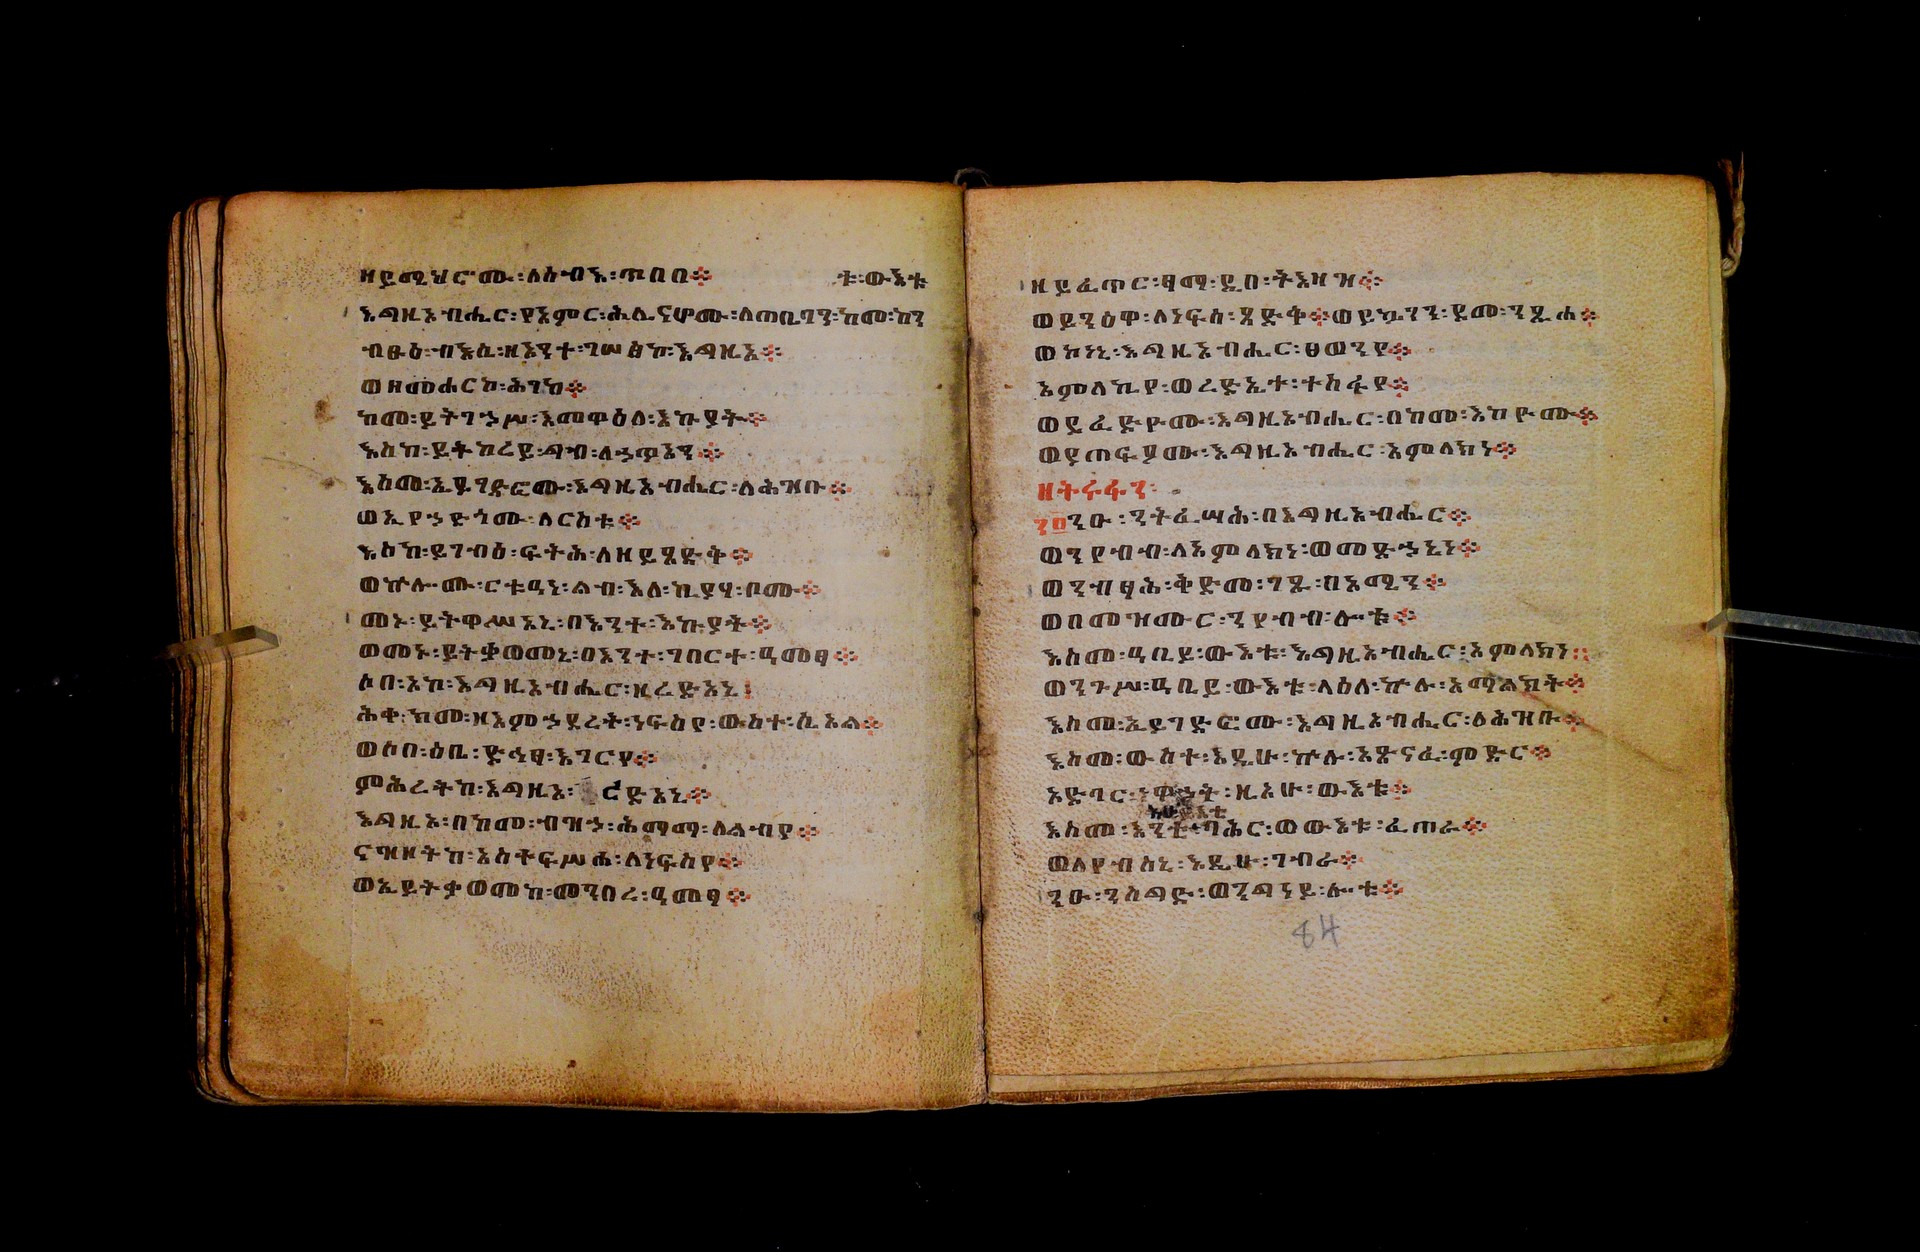 ዘይሜህሮሙ፡ለሰብእ፡ጥበበ፨ ቱ፡ውእቱ
እግዚአብሔር፡የአምር፡ሕሊናሆሙ፡ለጠቢባን፡ከመ፡ከን
ብፁዕ፡ብእሲ፡ዘአንተ፡ገሠፅኮ፡እግዚኦ፨
ወዘመሐርኮ፡ሕገከ፨
ከመ፡ይትገኃሥ፡እመዋዕለ፡እኩያት፨
እስከ፡ይትከረይ፡ግብ፡ለኃጥእን፨
እስመ፡ኢይገድፎሙ፡እግዚአብሔር፡ለሕዝቡ፨
ወኢየኃድጎሙ፡ለርስቱ፨
እስከ፡ይገብዕ፡ፍትሕ፡ለዘይጼድቅ፨
ወኵሎሙ፡ርቱዓነ፡ልብ፡እለ፡ኪያሃ፡ቦሙ፨
መኑ፡ይትዋሥአኒ፡በእንተ፡እኩያት፨
ወመኑ፡ይትቃወመኒ፡በእንተ፡ገበርተ፡ዓመፃ፨
ሶበ፡አኮ፡እግዚአብሔር፡ዘረድአኒ፨
ሕቀ፡ከመ፡ዘእምኃደረት፡ነፍስየ፡ውስተ፡ሲኦል፨
ወሶበ፡ዕቤ፡ድኅፃ፡እገርየ፨
ምሕረትከ፡እግዚኦ፡ረድአኒ፨
እግዚኦ፡በከመ፡ብዝኃ፡ሕማማ፡ለልብየ፨
ናዝዞትከ፡አስተፍሥሐ፡ለነፍስየ፨
ወኢይትቃወመከ፡መንበረ፡ዓመፃ፨
ዘይፈጥር፡ፃማ፡ዲበ፡ትእዛዝ፨
ወይንዕዋ፡ለነፍሰ፡ጻድቅ፨ወይኴንን፡ደመ፡ንጹሐ፨
ወኮነኒ፡እግዚአብሔር፡ፀወንየ፨
አምላኪየ፡ወረድኤተ፡ተስፋየ፨
ወይፈድዮሙ፡እግዚአብሔር፡በከመ፡እከዮሙ፨
ወያጠፍኦሙ፡እግዚአብሔር፡አምላክነ፨
ዘትሩፋን፡
ንዑ፡ንትፈሣሕ፡በእግዚአብሔር፨
ወንየብብ፡ለአምላክነ፡ወመድኃኒነ፨
ወንብፃሕ፡ቅድመ፡ገጹ፡በአሚን፨
ወበመዝሙር፡ንየብብ፡ሎቱ፨
እስመ፡ዓቢይ፡ውእቱ፡እግዚአብሔር፡አምላክነ፨
ወንጉሥ፡ዓቢይ፡ውእቱ፡ላዕለ፡ኵሉ፡አማልክት፨
እስመ፡ኢይገድፎሙ፡እግዚአብሔር፡ለሕዝቡ፨
እስመ፡ውስተ፡እዴሁ፡ኵሉ፡አጽናፈ፡ምድር፨
አድባር፡ነዋኃት፡ዚአሁ፡ውእቱ፨
እስመ፡እንቲ፡ባሕር፡ወውእቱ፡ፈጠራ፨
ወለየብሰኒ፡እደዊሁ፡ገብራ፨
ንዑ፡ንስግድ፡ወንግነይ፡ሎቱ፨
84